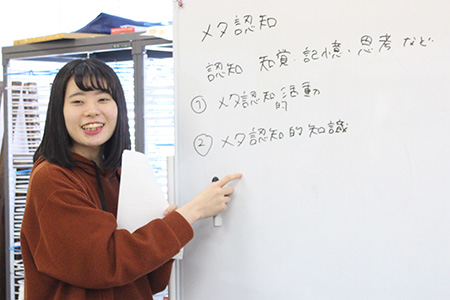 メタ認知
認知 知覚、記憶、思考 など
① メタ認知的活動
② メタ認知的知識